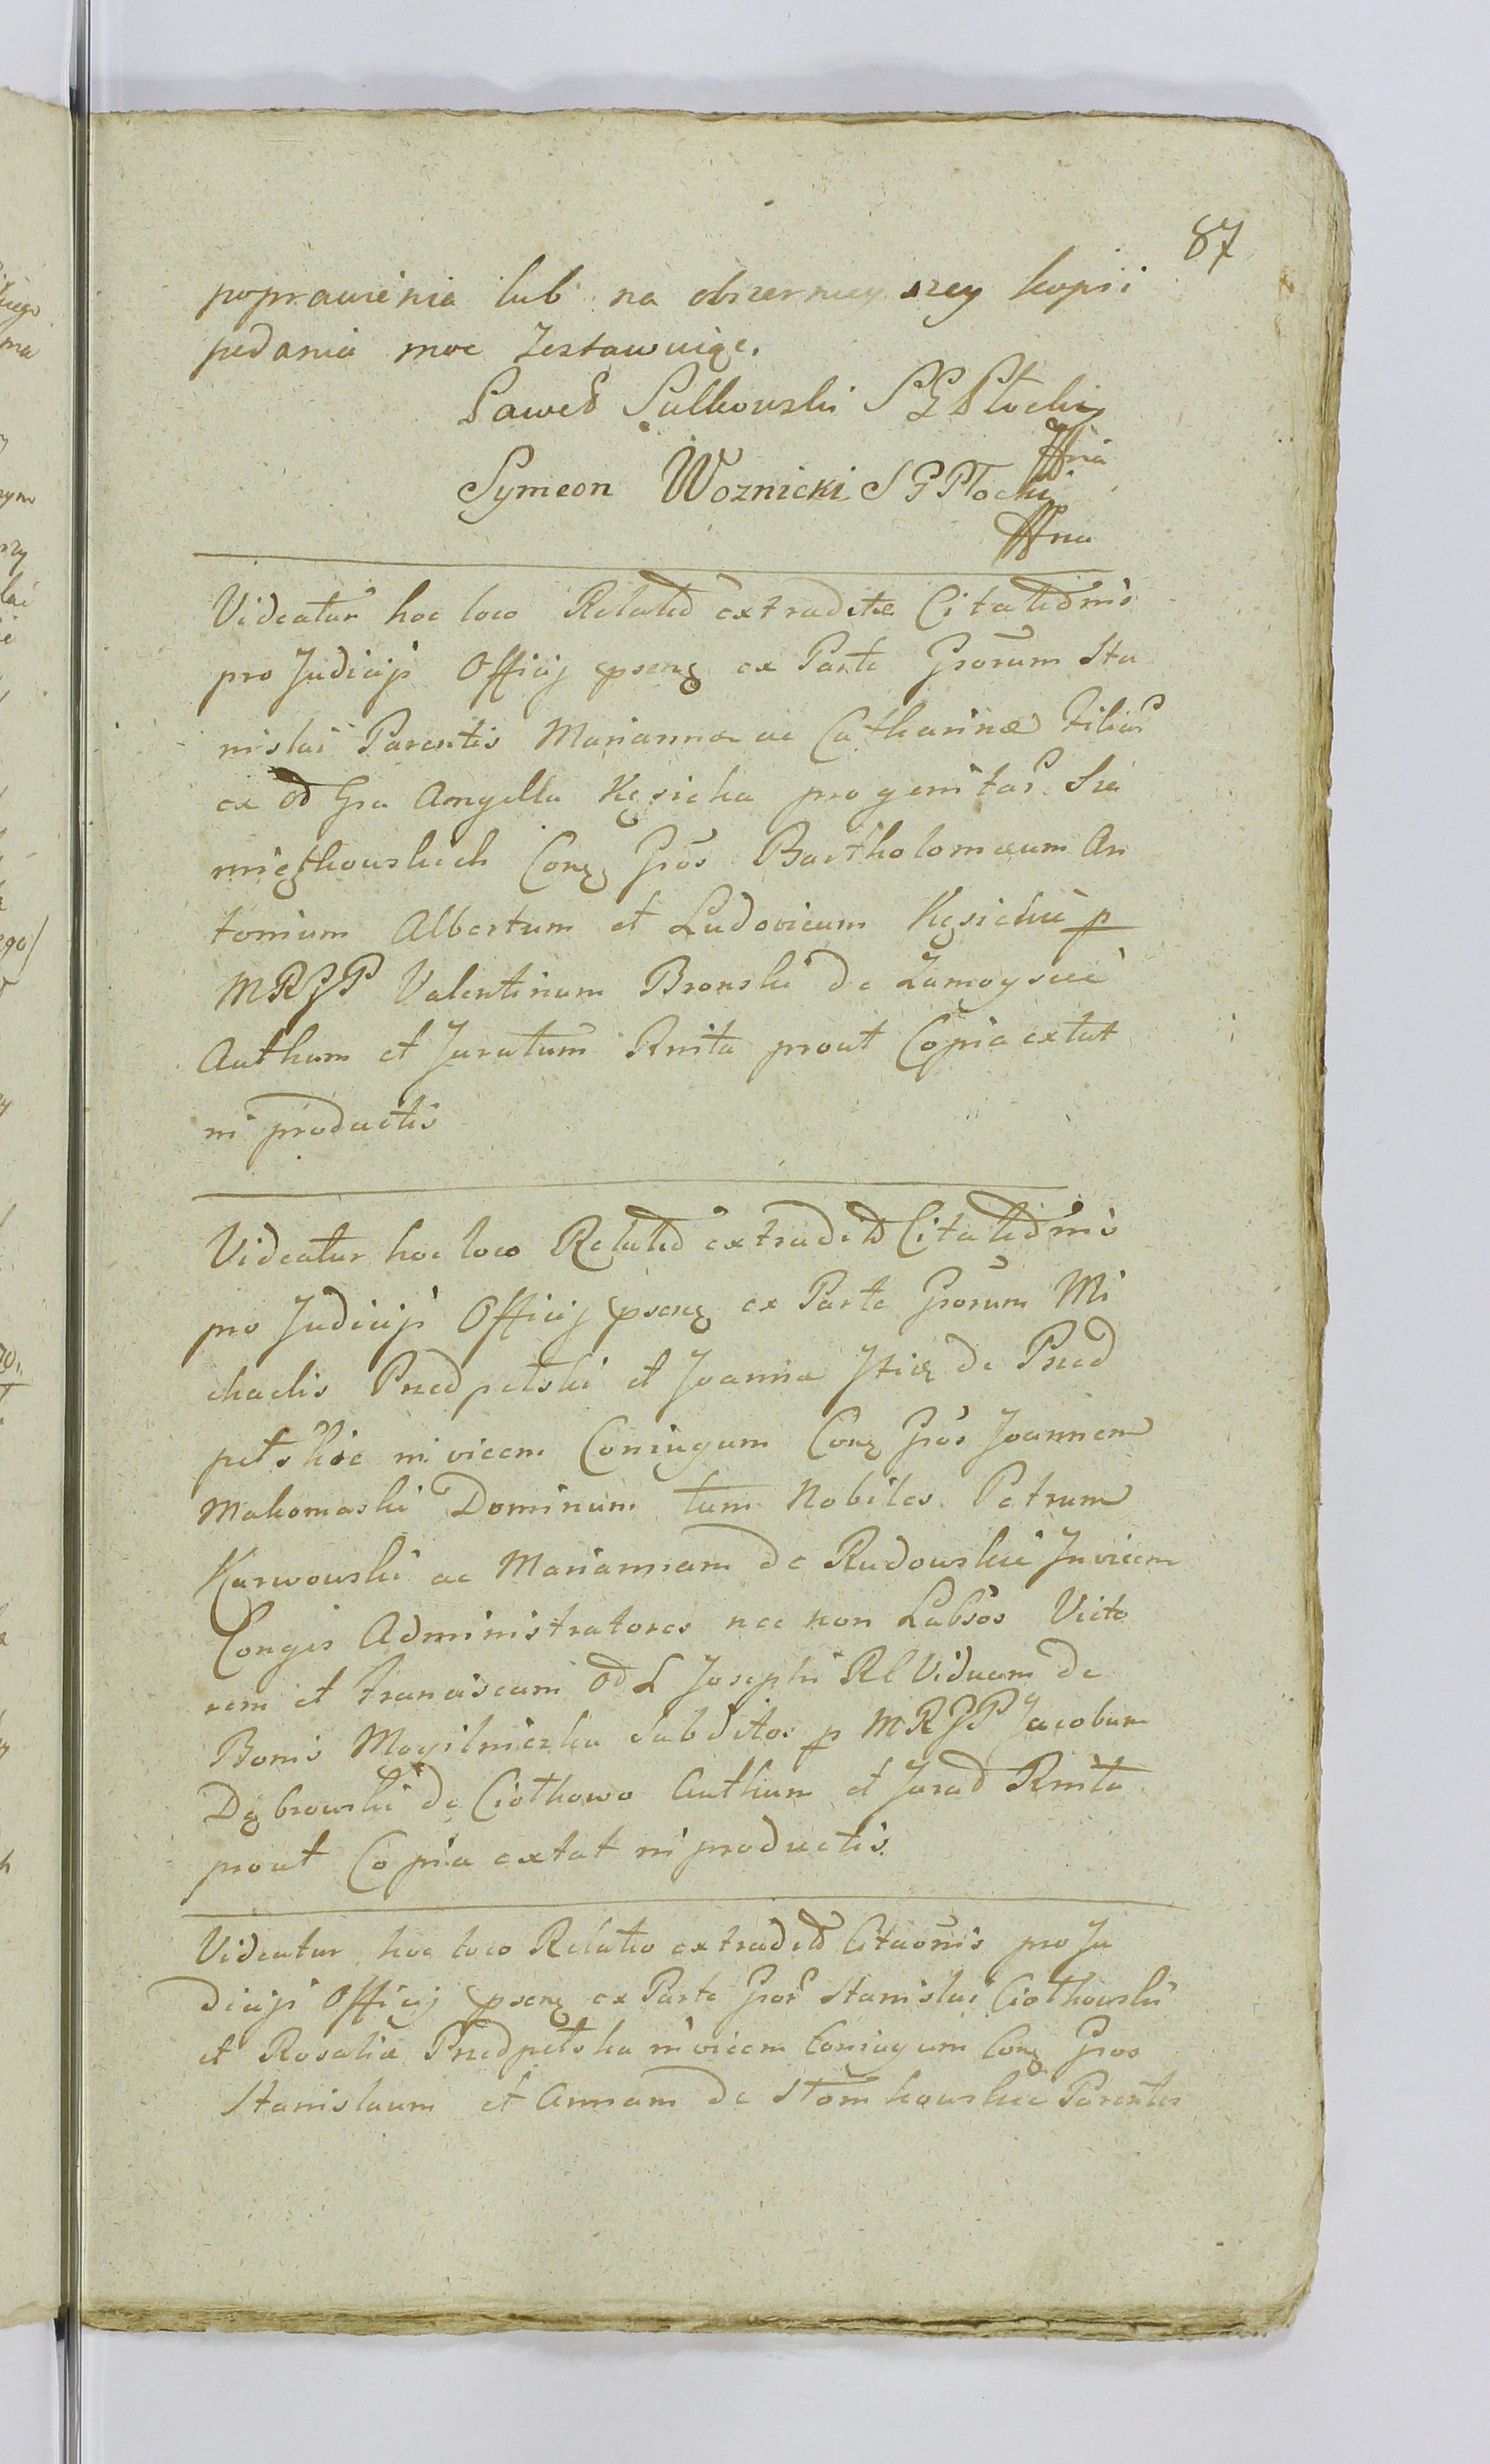 87
poprawienia lub na obszernieyszey kopii
podania moc Zostawuiąc.
Paweł Sulkowski S G Płocki
Symeon Woznicki S G Płocki
Videatur hoc loco Relatio extraditæ Citationis
pro Judicijs Officij ex Parte Grorum Sta
nislai Parentis Mariannæ ac Catharinæ Filiar
ex od Gra Angella Kęsicka progenitar
Cong Gros Bartholomæum An
tonium Albertum et Ludovicum Kęsickie p
MRGP Valentinum Bronski de Zamoyscie
Authum et Juratum Rnita prout Copia extat
in productis
Videatur hoc loco Relatio extradit Citationis
pro Judicijs Officij ex Parte Grorum Mi
chaelis Przedpełski et Joannæ de Przed
pełskie in vicem Coniugum Cong Gros Joannem
Makomaski Dominum tum Nobiles Petrum
Karwowski ac Mariannam de Rudowskie Invicem
Congis Administratores nec non Labsos Victo
rem et Franciscam od L Josephi Rl Viduam de
Bonis Mogilniczka Subditos p MRGP Jacobum
Dębrowski de Ciołkowo Authum et Jurat Rnita
prout Copia extat in productis
Videatur hoc loco Relatio extradit Citaonis pro Ju
dicijs Officij ex Parte Gror Stanislai Ciołkowski
et Rosaliæ Przedpełska in vicem Coniugum Cong Gros
Stanislaum et Annam de Słomkowskie Parentes